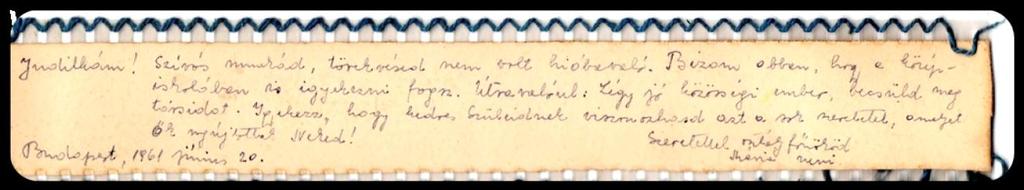 Juditkám! Szívós munkád, törekvésed nem volt hiábavaló. Bízom abban, hogy a közép-
iskolában is igyekezni fogsz. Útravalóul: Légy jó közösségi ember, becsüld meg
társaidat. Igyekezz, hogy kedves Szüleidnek viszonozhasd azt a sok szeretetet, amelyet
Ők nyújtottak Neked!
Szeretettel osztályfőnököd
Mária néni
Budapest, 1961 június 20.